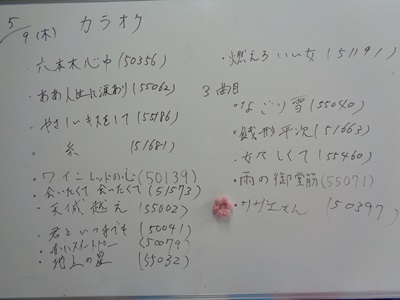 5/9(木) カラオケ
・六本木心中(50356)
・ああ人生に涙あり(55062)
・やさしいキスをして(55186)
・糸(51681)
・ワインレッドの心(50139)
・会いたくて会いたくて(51573)
・天城越え(55002)
・君といつまでも(50041)
・赤いスイートピー(50079)
・地上の星(55032)
・燃えろいい女(51191)
3曲目
・なごり雪(55040)
・銭形平次(51663)
・女々しくて(55460)
・雨の御堂筋(55071)
・サザエさん(50397)